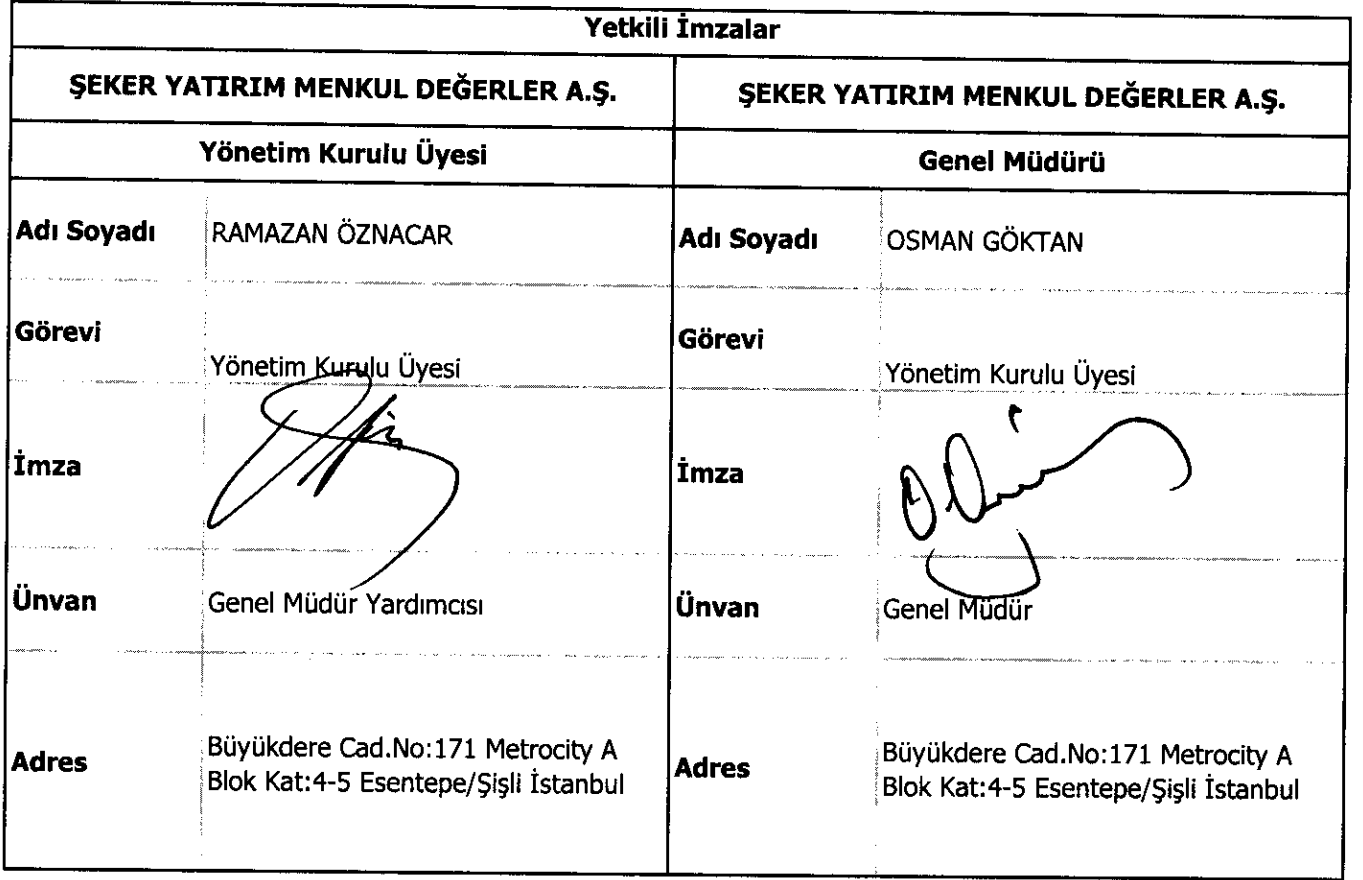 Yetkili İmzalar
ŞEKER YATIRIM MENKUL DEĞERLER A.Ş.
ŞEKER YATIRIM MENKUL DEĞERLER A.Ş.
Yönetim Kurulu Üyesi
Genel Müdürü
Adı Soyadı
RAMAZAN ÖZNACAR
Adı Soyadı
OSMAN GÖKTAN
Görevi
Yönetim Kurulu Üyesi
Görevi
Yönetim Kurulu Üyesi
İmza
İmza
Ünvan
Genel Müdür Yardımcısı
Ünvan
Genel Müdür
Adres
Büyükdere Cad.No:171 Metrocity A
Blok Kat:4-5 Esentepe/Şişli İstanbul
Adres
Büyükdere Cad.No:171 Metrocity A
Blok Kat:4-5 Esentepe/Şişli İstanbul